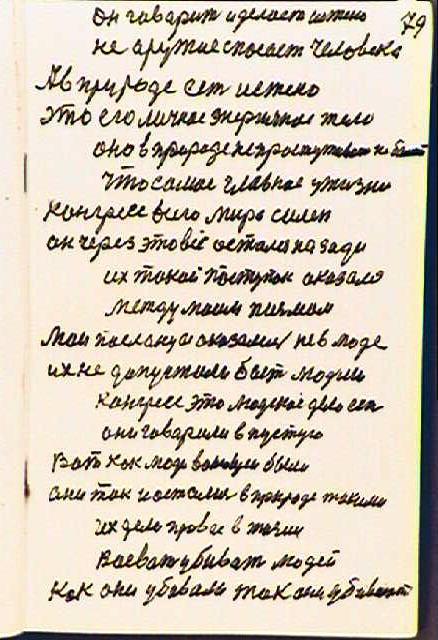 79
он говарит и делает истено
не аружие спасает Человека
А в природе сет истено
это его личное энергичное тело
оно в природе не простужает не
Что самое главное у жизни
Конгресс всего мира силен
он через это всё астался на зади
их такой поступок аказался
между моим
Мои посланцы аказались не в моде
их не допустили быт
Конгресс это людское дело сет
они говарили в пустую
Вот как люди были
они так и астались в природе такими
их дело в жизни
Воеват убиват людей
Как они убивали так они убивают